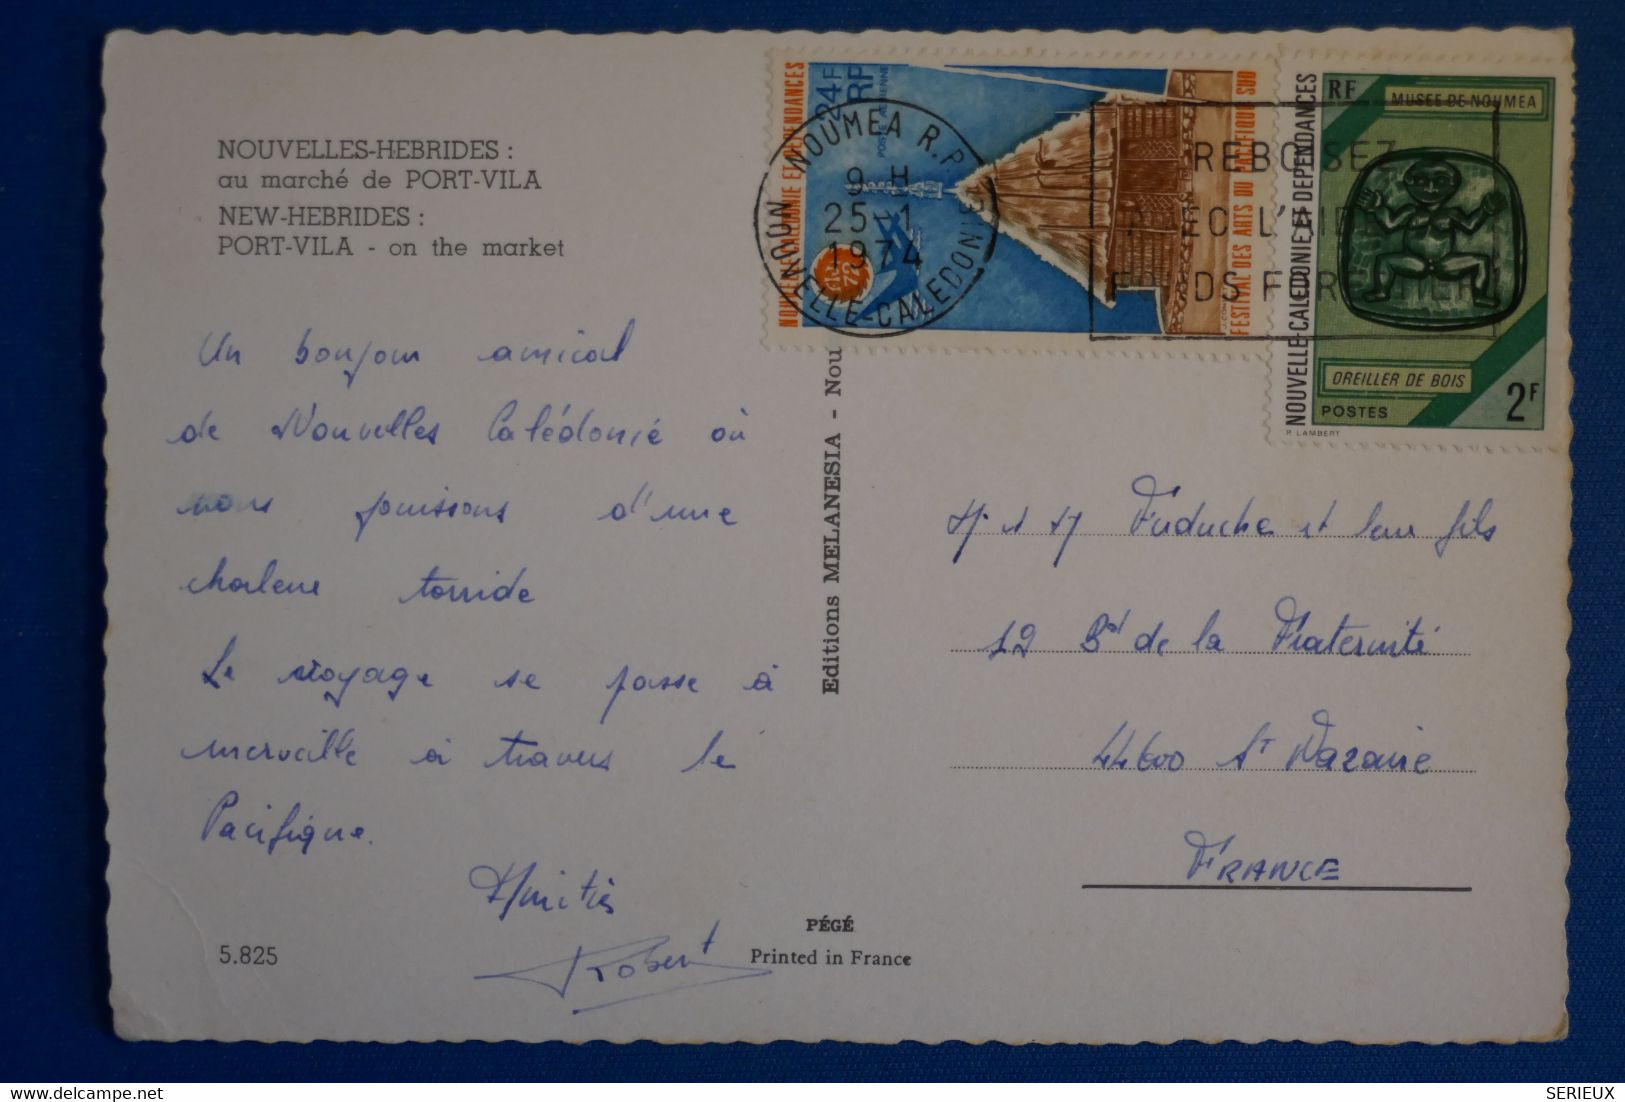 NOUVELLES-HEBRIDES :
au marché de PORT-VILA
NEW-HEBRIDES :
PORT-VILA - on the market
Un bonjour amical
de Nouvelles Calédonie où
nous puissons d'une
chaleur torride
Le voyage se passe à
merveille à travers le
Pacifique.
Amitiés
Robert
5.825
PÉGÉ
Printed in France
Editions MELANESIA - Nou
NOUVELLE-CALÉDONIE ET DÉPENDANCES
24F
RF
POSTE AÉRIENNE
FESTIVAL DES ARTS DU PACIFIQUE SUD
NOUMEA R.P.
9 H
25-1
1974
NOUVELLE-CALEDONIE
REBOISEZ
AVEC L'AIDE
FONDS FORESTIER
RF
MUSEE DE NOUMEA
NOUVELLE-CALEDONIE ET DEPENDANCES
OREILLER DE BOIS
POSTES
2F
P. LAMBERT
M. et M Fuduche et leur fils
12 Bd de la Fraternité
44600 St Nazaire
FRANCE
SERIEUX